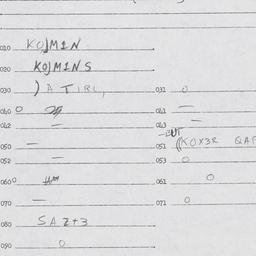 010 KOJM1N
020 KOJM1NS
030 ) A TIRI, 031 O
040 O 041 —
042 — 043 —
050 — 051 (KOX3R QAF
052 — 053 O
060 O 061 O
070 — 071 O
080 SAZ+3
090 O